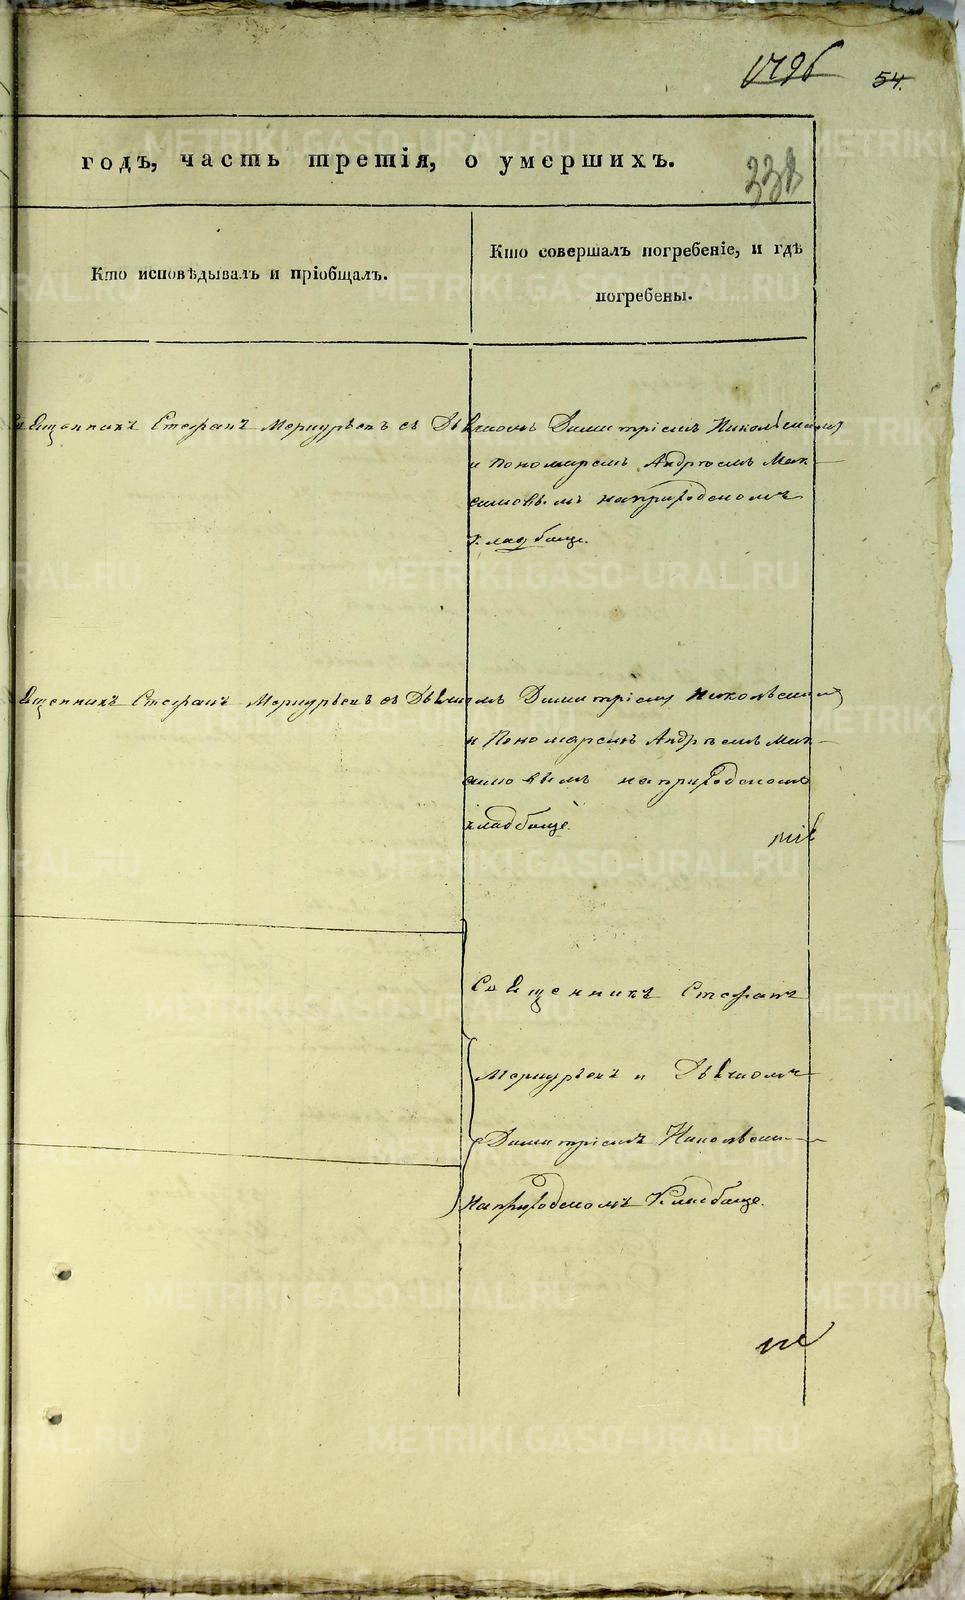 1796 54.
годъ, часть третія, о умершихъ.
338
Кто исповѣдывалъ и пріобщалъ.
Кто совершалъ погребеніе, и гдѣ
погребены.
Священникъ Стефанъ Меркурьевъ съ Дьякономъ Димитріемъ Никольскимъ
и Пономаремъ Андреемъ Мак-
симовымъ наприходскомъ
кладбище.
ященникъ Стефанъ Меркурьевъ съ Дьякономъ Димитріемъ Никольским
и Пономаремъ Андреемъ Мак-
симовымъ наприходскомъ
кладбище.
Священникъ Стефанъ
Меркурьевъ и Дьякономъ
Димитріемъ Никольским
наприходскомъ Кладбище.
METRIKI.GASO-URAL.RU